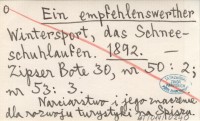 0
Ein empfehlenswerther
Wintersport, das Schnee-
schuhlaufen. 1892. —
Zipser Bote 30, nr 50 : 2 ;
nr 53 : 3.
Narciarstwo i jego znaczenie
dla rozwoju turystyki na Spiszu.